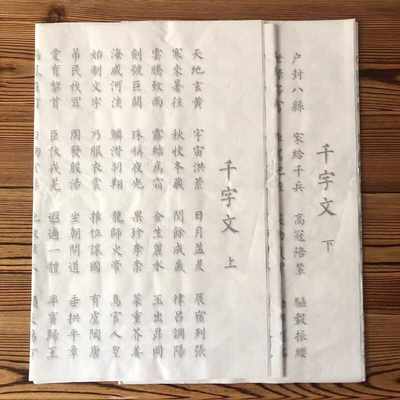 千字文 下
户封八縣 家給千兵 高冠陪輦 驅轂振纓
千字文 上
天地玄黄 宇宙洪荒 日月盈昃 辰宿列張
寒來暑往 秋收冬藏 閏餘成歲 律呂調陽
雲騰致雨 露結為霜 金生麗水 玉出崑岡
劍號巨闕 珠稱夜光 果珍李柰 菜重芥姜
海咸河淡 鱗潛羽翔 龍師火帝 鳥官人皇
始制文字 乃服衣裳 推位讓國 有虞陶唐
弔民伐罪 周發殷湯 坐朝問道 垂拱平章
愛育黎首 臣伏戎羌 遐邇一體 率賓歸王